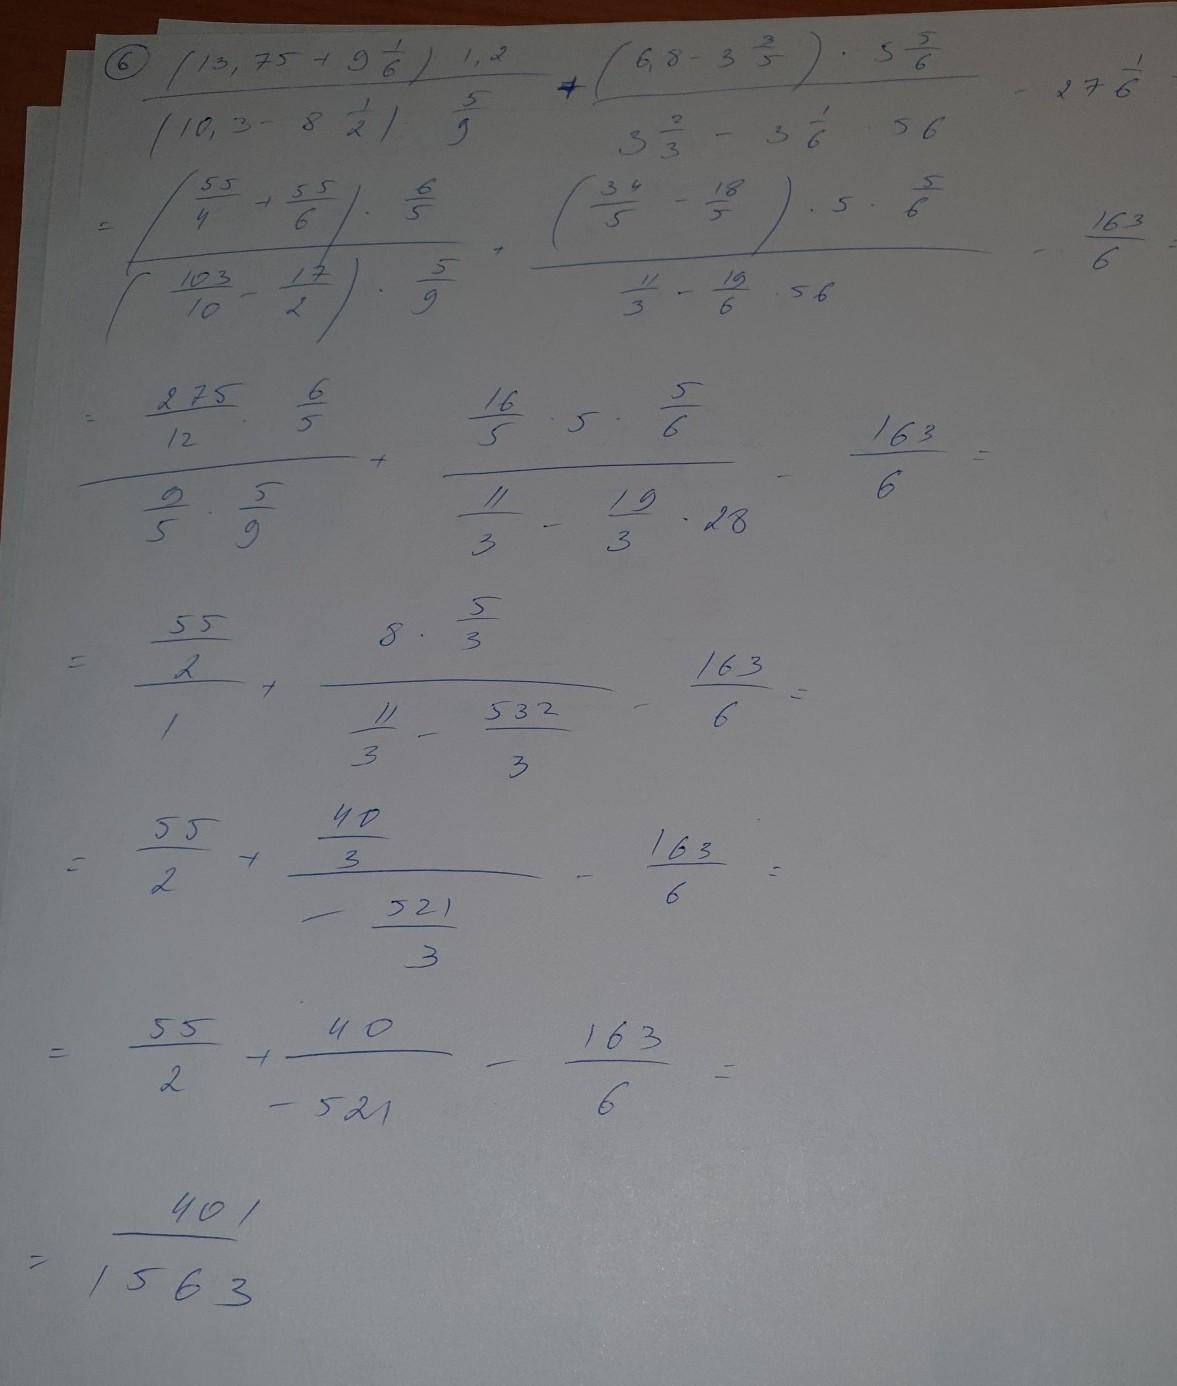 6 (13,75 + 9 1/6) 1,2 / (10,3 - 8 1/2) 5/9 + (6,8 - 3 3/5) · 5 5/6 / 3 2/3 - 3 1/6 · 56 - 27 1/6
= (55/4 + 55/6) · 6/5 / (103/10 - 17/2) · 5/9 + (34/5 - 18/5) · 5 · 5/6 / 11/3 - 19/6 · 56 - 163/6 =
= 275/12 · 6/5 / 9/5 · 5/9 + 16/5 · 5 · 5/6 / 11/3 - 19/3 · 28 - 163/6 =
= 55/2 / 1 + 8 · 5/3 / 11/3 - 532/3 - 163/6 =
= 55/2 + 40/3 / - 521/3 - 163/6 =
= 55/2 + 40/-521 - 163/6 =
= 401/1563